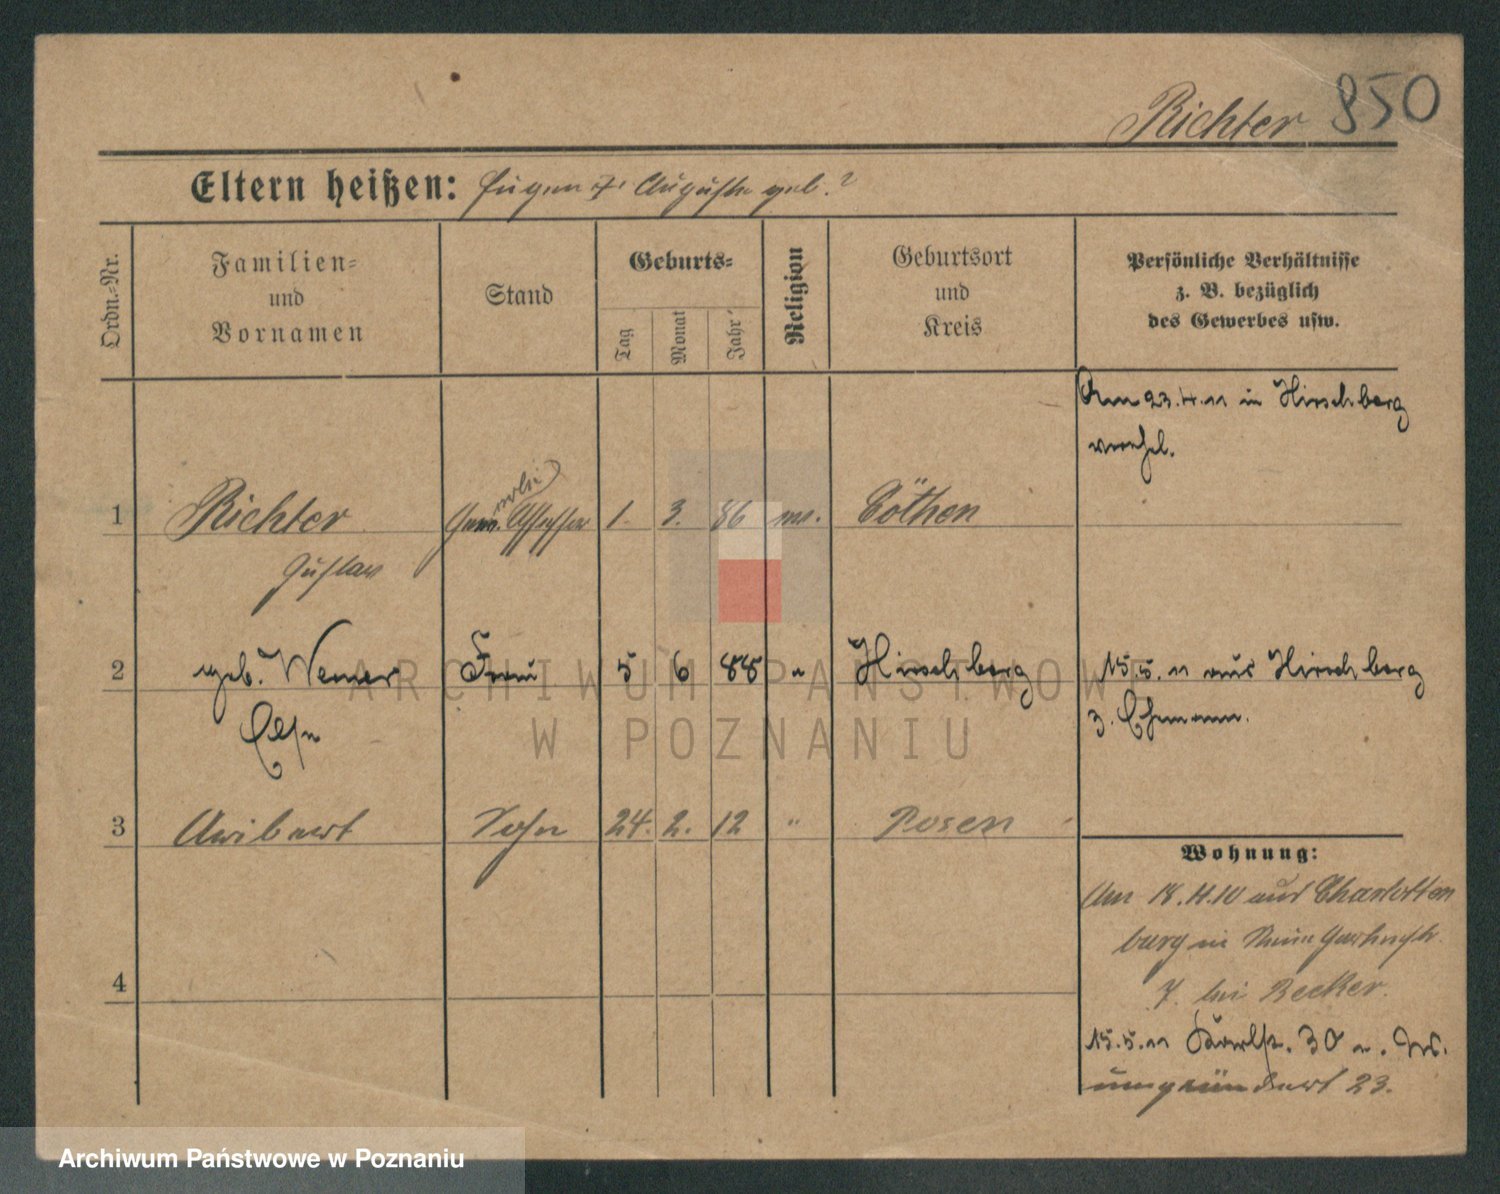 Richter 850
Eltern heißen: Eugen †, Auguste geb. ?
Ordn.-Nr.
Familien-
und
Vornamen
Stand
Geburts-
Tag
Monat
Jahr
Religion
Geburtsort
und
Kreis
Persönliche Verhältnisse
z. B. bezüglich
des Gewerbes usw.
Am 23.4.11 in Hirschberg
verehel.
1 Richter Assessor 1. 3. 86 ev. Cöthen
Gustav
2 geb. Werner Frau 5 6 88 " Hirschberg
15.5.11 aus Hirschberg
Else
z. Ehemann.
3 Aribert Sohn 24. 2. 12 " Posen
Wohnung:
Am 18.11.10 aus Charlotten
burg in Neue Gartenstr.
7. bei Becker.
4
15.5.11 Karlstr. 30
23.
ARCHIWUM PAŃSTWOWE
W POZNANIU
Archiwum Państwowe w Poznaniu